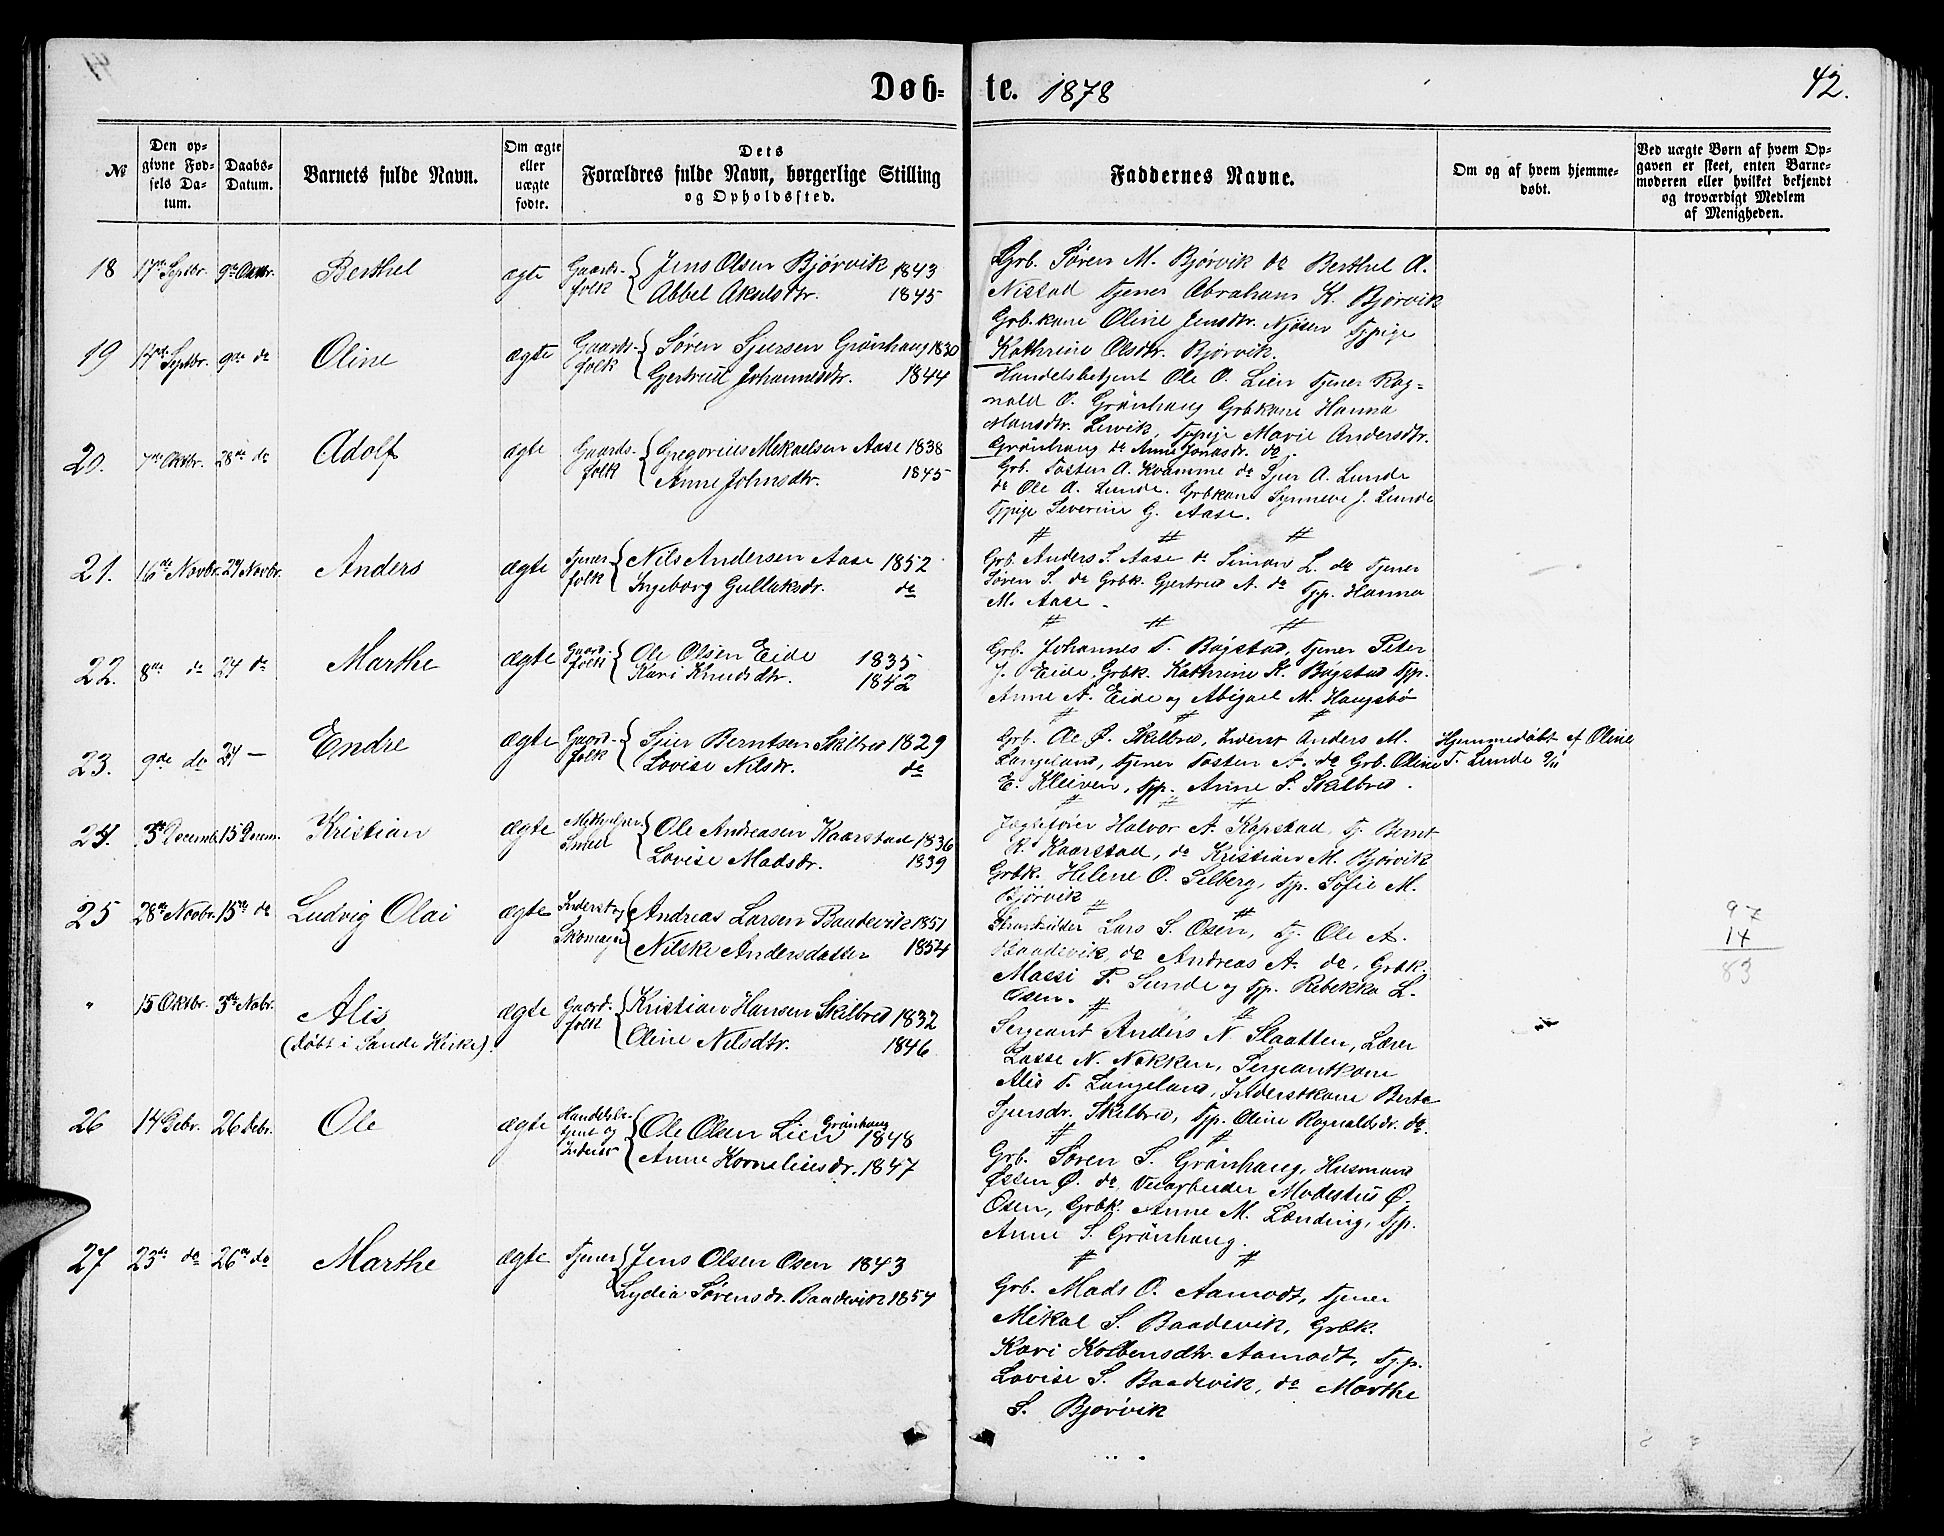 Døb-te. 1878
42.
№
Den opgivne Fødsels Datum.
Daabs-Datum.
Barnets fulde Navn.
Om ægte eller uægte fødte.
Dets Forældres fulde Navn, borgerlige Stilling og Opholdssted.
Faddernes Navne.
Om og af hvem hjemmedøbt.
Ved uægte Børn af hvem Opgaven er skeet, enten Barnemoderen eller hvilket bekjendt og troværdigt Medlem af Menigheden.
18 17de Septbr. 9de Oktbr. Berthel ægte Gaardsfolk Jens Olsen Bjørvik 1843
Abbel Akselsdtr. 1845
Grb. Søren M. Bjørvik do Berthel A.
Nistad Tjener Abraham K. Bjørvik
Grb.kone Oline Jensdtr. Njøsen Tjpige
Kathrine Olsdtr. Bjørvik.
19 17de Septbr. 9de do Oline ægte Gaardsfolk Søren Sjursen Grønhaug 1830
Gjertrud Johannesdtr. 1844
Handelsbetjent Ole O. Lien Tjener Rag-
nald O. Grønhaug Grbkone Hanna
Hansdtr. Levik, Tjpige Marie Andersdtr.
Grønhaug do Anne Jonasdr. do.
20. 7de Oktbr. 28de do Adolf ægte Gaardsfolk Gregorius Mekaelsen Aase 1838
Anne Johnsdtr. 1845
Grb. Tosten A. Kvamme do Sjur A. Lunde
do Ole A. Lunde. Grbkone Synneve J. Lunde
Tjpige Severine G. Aase.
21. 16de Novbr. 24 Novbr. Anders ægte Tjenerfolk Nils Andersen Aase 1852
Ingeborg Gullaksdr. do
Grb. Anders S. Aase do Simon L. do Tjener
Søren S. do Grbk. Gjertrud A. do Tjp. Hanna
M. Aase.
22. 8de do 24 do Marthe ægte Gaardfolk Ole Olsen Eide 1835
Kari Knudsdtr. 1842
Grb. Johannes T. Bøgstad, Tjener Peter
J. Eide, Grbk. Kathrine K. Bøgstad Tjp.
Anne A. Eide og Abigael M. Haugsbø
23. 9de do 24 — Endre ægte Gaardfolk Sjur Berntsen Skilbred 1829
Lovise Nilsdr. do
Grb. Ole Ø. Skilbred, Inderst Anders M.
Langeland, Tjener Tosten A. do Grb. Oline
E. Kleiven, Tjp. Anne S. Skilbred.
Hjemmedøbt af Oline
T. Lunde 9/11
24. 3de Decemb. 15 Decem. Kristian ægte Ole Andreasen Kaarstad 1836
Lovise Madsdr. 1839
Jægtefører Halvor A. Kopstad, Tj. Bernt
K. Kaarstad, do Kristian M. Bjørvik
Grbk. Helene O. Selberg, Tjp. Sofie M.
Bjørvik
25 28de Novbr. 15de do Ludvig Olai ægte Inderst og Skomager Andreas Larsen Baadevik 1851
Nilske Andersdatter 1854
Strandsidder Lars S. Osen, Tj. Ole A.
Baadevik, do Andreas A. do, Grbk.
Massi P. Lunde og Tjp. Rebekka L.
Osen.
" 15 Oktbr. 3de Nobr. Alis ægte Gaardfolk Kristian Hansen Skilbred 1832
(døbt i Sande Kirke). Oline Nilsdtr. 1846
Sergeant Anders N. Slaatten, Lærer
Lasse N. Nokken, Sergeantkone
Alis T. Langeland, Inderstkone Berte
Sjursdr. Skilbred, Tjp. Oline Ragnaldsdr. do.
26 14 Debr. 26 Debr. Ole ægte Handelsbetjent og Inderst Ole Olsen Lien Grønhaug 1848
Anne Korneliusdr. 1847
Grb. Søren S. Grønhaug, Husmand
Østen Ø. do, Veiarbeider Modestus Ø.
Osen, Grbk. Anne M. Lending, Tjp.
Anne S. Grønhaug.
27 23de do 26de do Marthe ægte Tjener Jens Olsen Osen 1843
Lydia Sørensdr. Baadevik 1854
Grb. Mads O. Aamodt, Tjener
Mikal S. Baadevik, Grbk.
Kari Kolbensdtr. Aamodt, Tjp.
Lovise S. Baadevik, do Marthe
S. Bjørvik
97
14
83